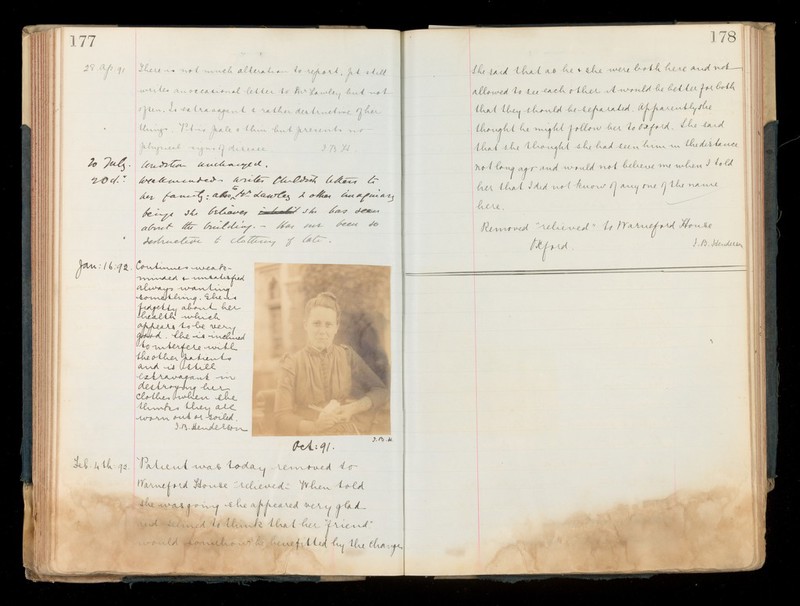 177
28 Ap. 91 There is not much alteration to report. Pt. still
writes an occasional letter to Mr Lawley but not
often. Is extravagant & rather destructive of her
things. Pt. is pale & thin but presents no
physical signs of disease J.B.H.
20 July. Condition unchanged.
20 Oct. Weakminded. Writes childish letters to
her family; also to Mr Lawley & other imaginary
beings she believes she has seen
about the building. – Has not been so
destructive to clothing of late.
Jan: 16: 92. Continues weak-
minded & unsatisfied
always wanting
something. She is
fidgetty about her
health which
appears to be very
good. She is inclined
to interfere with
the other patients
and is still
extravagant in
destroying her
clothes when she
thinks they are
worn out or soiled.
J.B. Henderson
Oct: 91.
J.B.H.
Feb. 4th 92. Patient was today removed to
Warneford House "relieved." When told
she was going she appeared very glad
and seemed to think that her "friend"
would somehow be benefitted by the change
178
She said that as he & she were both here and not
allowed to see each other it would be better for both
that they should be separated. Apparently she
thought he might follow her to Oxford. She said
that she thought she had seen him in the distance
not long ago and would not believe me when I told
her that I did not know of any one of the name
here.
Removed "relieved" to Warneford House
Oxford. J.B. Henderson